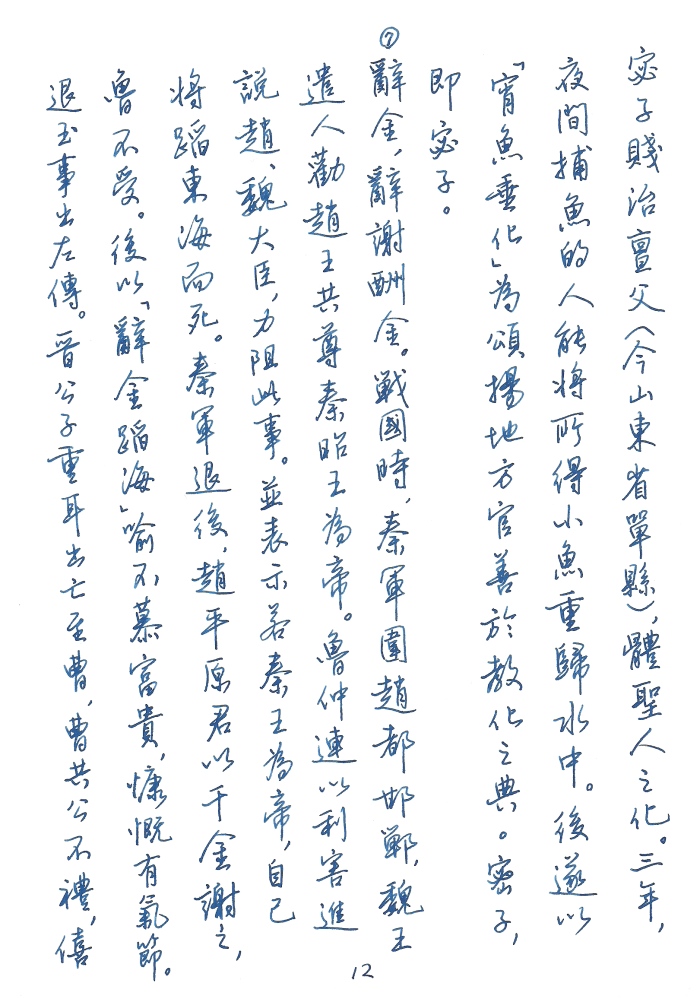 宓子賤治亶父（今山東省單縣），體聖人之化。三年，
夜間捕魚的人能將所得小魚重歸水中。後遂以
「宵魚垂化」為頌揚地方官善於教化之典。密子，
即宓子。
⑦辭金，辭謝酬金。戰國時，秦軍圍趙都邯鄲，魏王
遣人勸趙王共尊秦昭王為帝。魯仲連以利害進
說趙、魏大臣，力阻此事。並表示若秦王為帝，自己
將蹈東海而死。秦軍退後，趙平原君以千金謝之，
魯不受。後以「辭金蹈海」喻不慕富貴，慷慨有氣節。
退玉事出左傳。晉公子重耳出亡至曹，曹共公不禮，僖
12